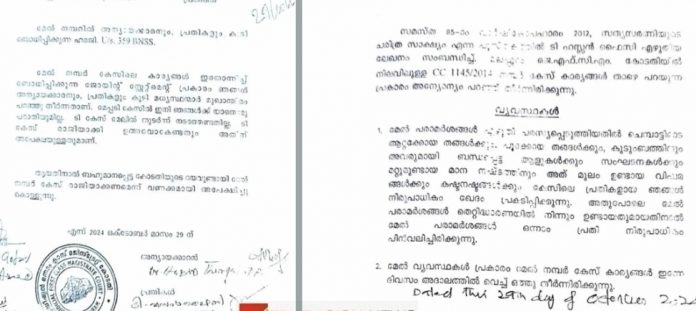 പ്രതികൾ
മേൽ നമ്പരിൽ അന്യായക്കാരനും, പ്രതികളും കൂടി
ബോധിപ്പിക്കുന്ന ഹരജി. U/s. 359 BNSS.
മേൽ നമ്പർ കേസിലെ കാര്യങ്ങൾ ഇതോന്നിച്ച്
ബോധിപ്പിക്കുന്ന ജോയിന്റ് സ്റ്റേറ്റ്മെന്റ് പ്രകാരം ഞങ്ങൾ
അന്യായക്കാരനും, പ്രതികളും കൂടി മദ്ധ്യസ്ഥന്മാർ മുഖാന്തിരം
പറഞ്ഞു തീർന്നതാണ്. മേപ്പടി കേസിൽ ഇനി ഞങ്ങൾക്ക് യാതൊരു
പരാതിയുമില്ല. ടി കേസ് മേലിൽ തുടർന്ന് നടത്തേണ്ടതില്ല. ടി
കേസ് രാജിയാക്കി ഉത്തരവാകേണ്ടതിനും
അപേക്ഷയുള്ളതുമാണ്.
ആയതിനാൽ ബഹുമാനപ്പെട്ട കോടതിയുടെ ദയവുണ്ടായി മേൽ
നമ്പർ കേസ് രാജിയാക്കണമെന്ന് വണക്കമായി അപേക്ഷിച്ചു
കൊള്ളുന്നു.
എന്ന് 2024 ഒക്ടോബർ മാസം 29 ന്
അന്യായക്കാരൻ
പ്രതികൾ
സമസ്ത 85-ാം വാർഷികോപഹാരം 2012, സത്യസരണിയുടെ
ചരിത്ര സാക്ഷ്യം എന്ന പുസ്തകത്തിൽ ടി ഹസ്സൻ ഫൈസി എഴുതിയ
ലേഖനം സംബന്ധിച്ച്. മലപ്പുറം ജെ.എഫ്.സി.എം. കോടതിയിൽ
നിലവിലുള്ള CC 1145/2014 നമ്പർ കേസ് കാര്യങ്ങൾ താഴെ പറയുന്ന
പ്രകാരം അന്യോന്യം പറഞ്ഞ് തീർന്നിരിക്കുന്നു.
വ്യവസ്ഥകൾ
1. മേൽ പരാമർശങ്ങൾ എഴുതി പരസ്യപ്പെടുത്തിയതിൽ ചെമ്പാട്ടിടെ
ആറ്റക്കോയ തങ്ങൾക്കും, പൂക്കോയ തങ്ങൾക്കും, കുടുംബത്തിനും
അവരുമായി ബന്ധപ്പെട്ട ആളുകൾക്കും സംഘടനകൾക്കും
മറ്റുമുണ്ടായ മാന നഷ്ടത്തിനും അത് മൂലം ഉണ്ടായ വിഷമ
ങ്ങൾക്കും കഷ്ടനഷ്ടങ്ങൾക്കും കേസിലെ പ്രതികളായ ഞങ്ങൾ
നിരുപാധികം ഖേദം പ്രകടിപ്പിക്കുന്നു. അതുപോലെ മേൽ
പരാമർശങ്ങൾ തെറ്റിദ്ധാരണയിൽ നിന്നും ഉണ്ടായതുമായതിനാൽ
മേൽ പരാമർശങ്ങൾ ഒന്നാം പ്രതി നിരുപാധികം
പിൻവലിച്ചിരിക്കുന്നു.
2. മേൽ വ്യവസ്ഥകൾ പ്രകാരം മേൽ നമ്പർ കേസ് കാര്യങ്ങൾ ഇന്നേ
ദിവസം അദാലത്തിൽ വെച്ച് ഒത്തു തീർന്നിരിക്കുന്നു.
Dated this 29th day of October 2024